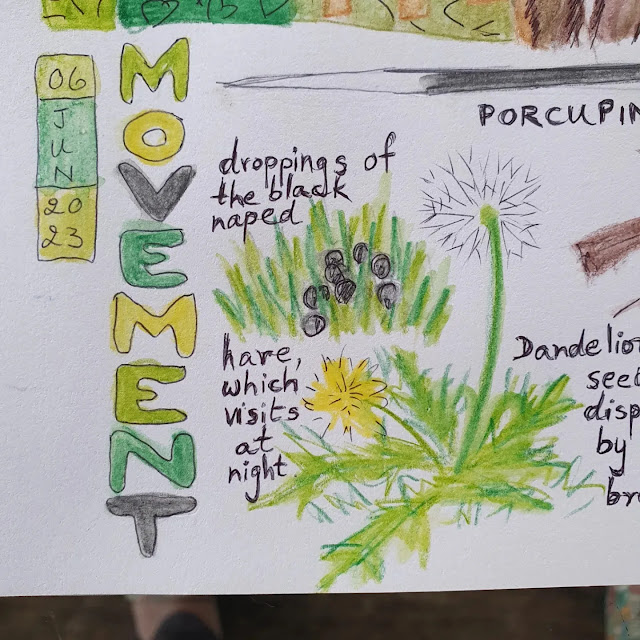 06
JUN
20
23
MOVEMENT
droppings of
the black
naped
hare,
which
visits
at
night
PORCUPIN
Dandelion
seed
disp
by
br